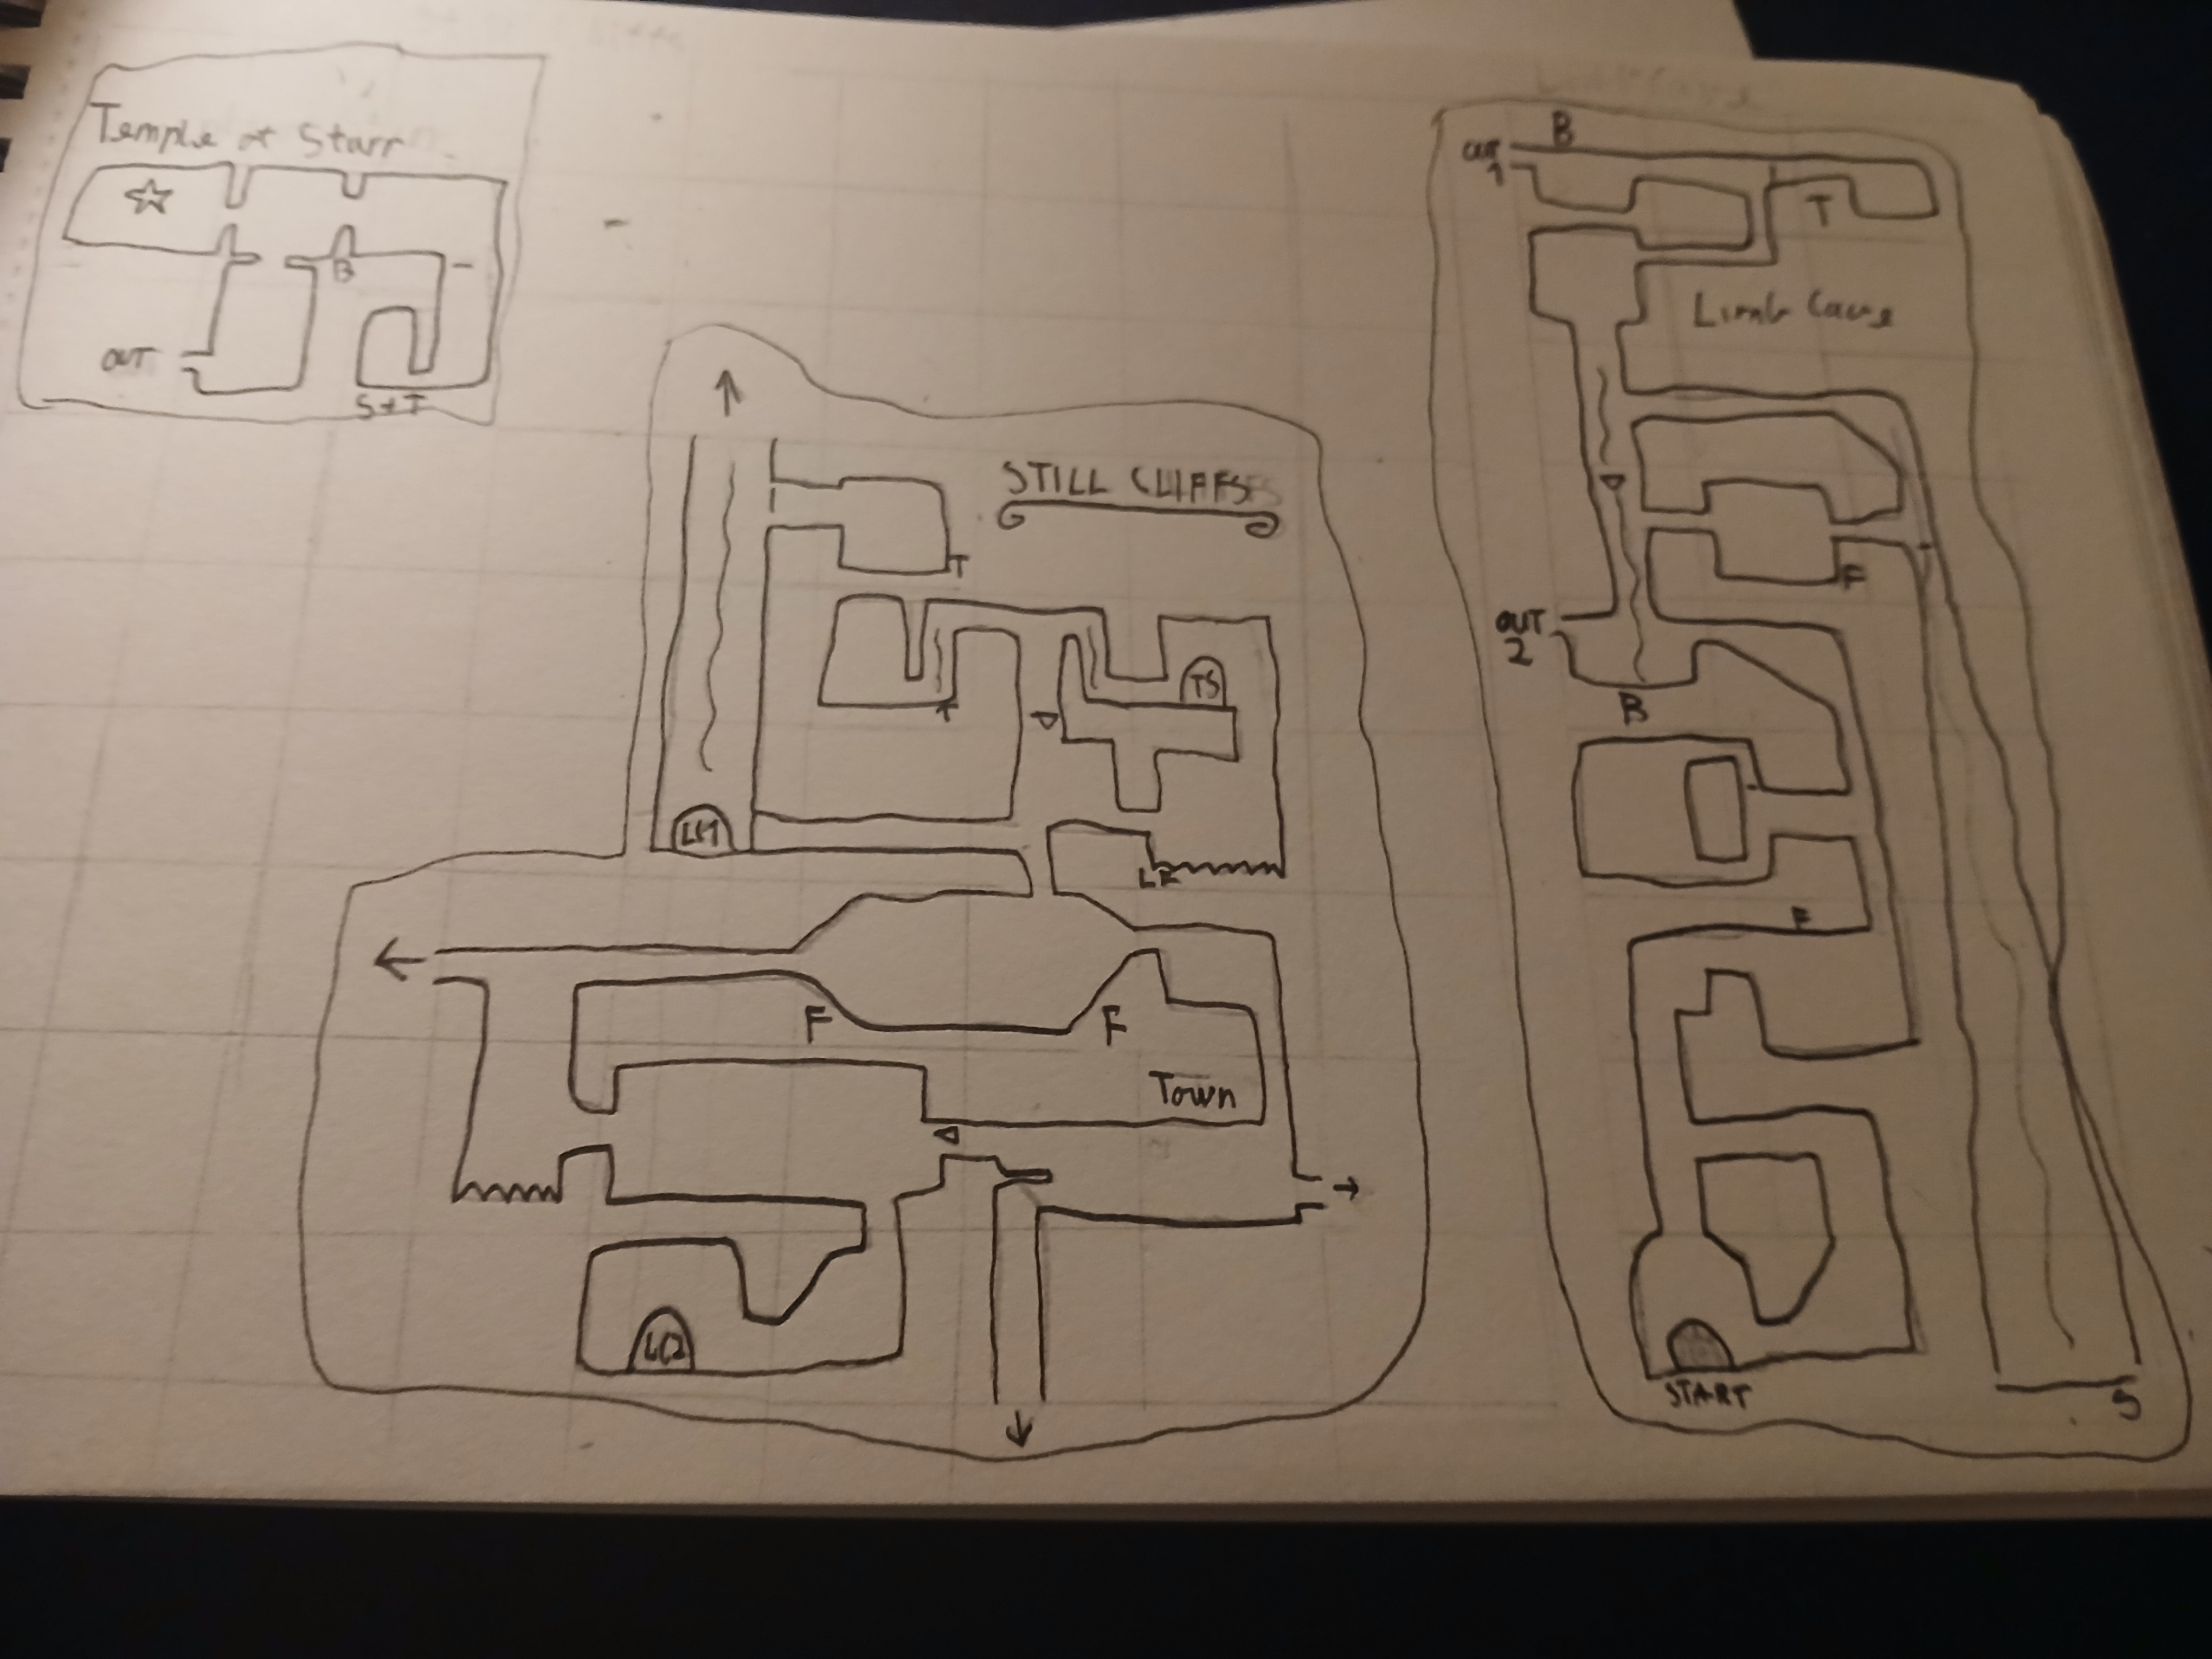 Temple of Starr
B
OUT
S+T
STILL CLIFFS
T
T
TS
LC1
LF
F
F
Town
LC2
B
OUT
1
T
Limb Cave
F
OUT
2
B
F
START
S